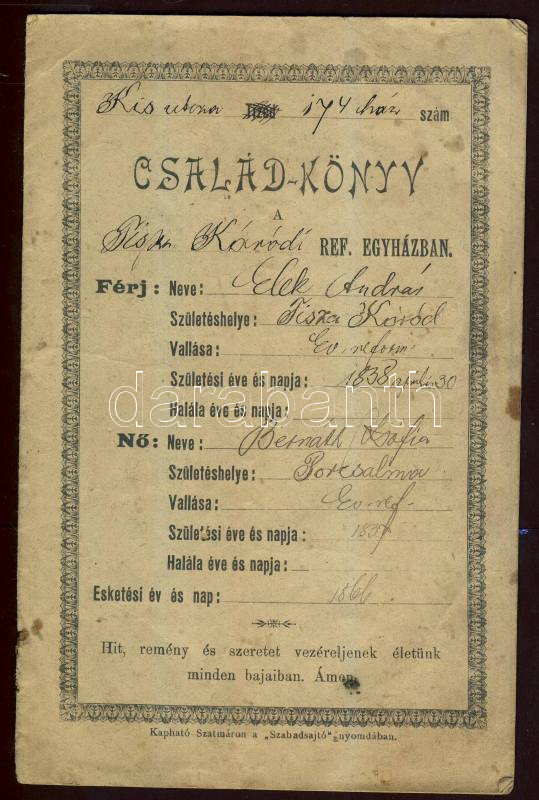 Kis utcza 174 ház szám
CSALÁD-KÖNYV
A
Tisza Káródi REF. EGYHÁZBAN.
Férj: Neve: Elek András
Születéshelye: Tisza Káród
Vallása: Ev. reform
Születési éve és napja: 1838 április 30
Halála éve és napja:
darabanth
Nő: Neve: Bernáth Zofia
Születéshelye: Porcsalma
Vallása: Ev. ref.
Születési éve és napja: 1837
Halála éve és napja:
Esketési év és nap: 1866
Hit, remény és szeretet vezéreljenek életünk
minden bajaiban. Ámen.
Kapható Szatmáron a „Szabadsajtó" nyomdában.